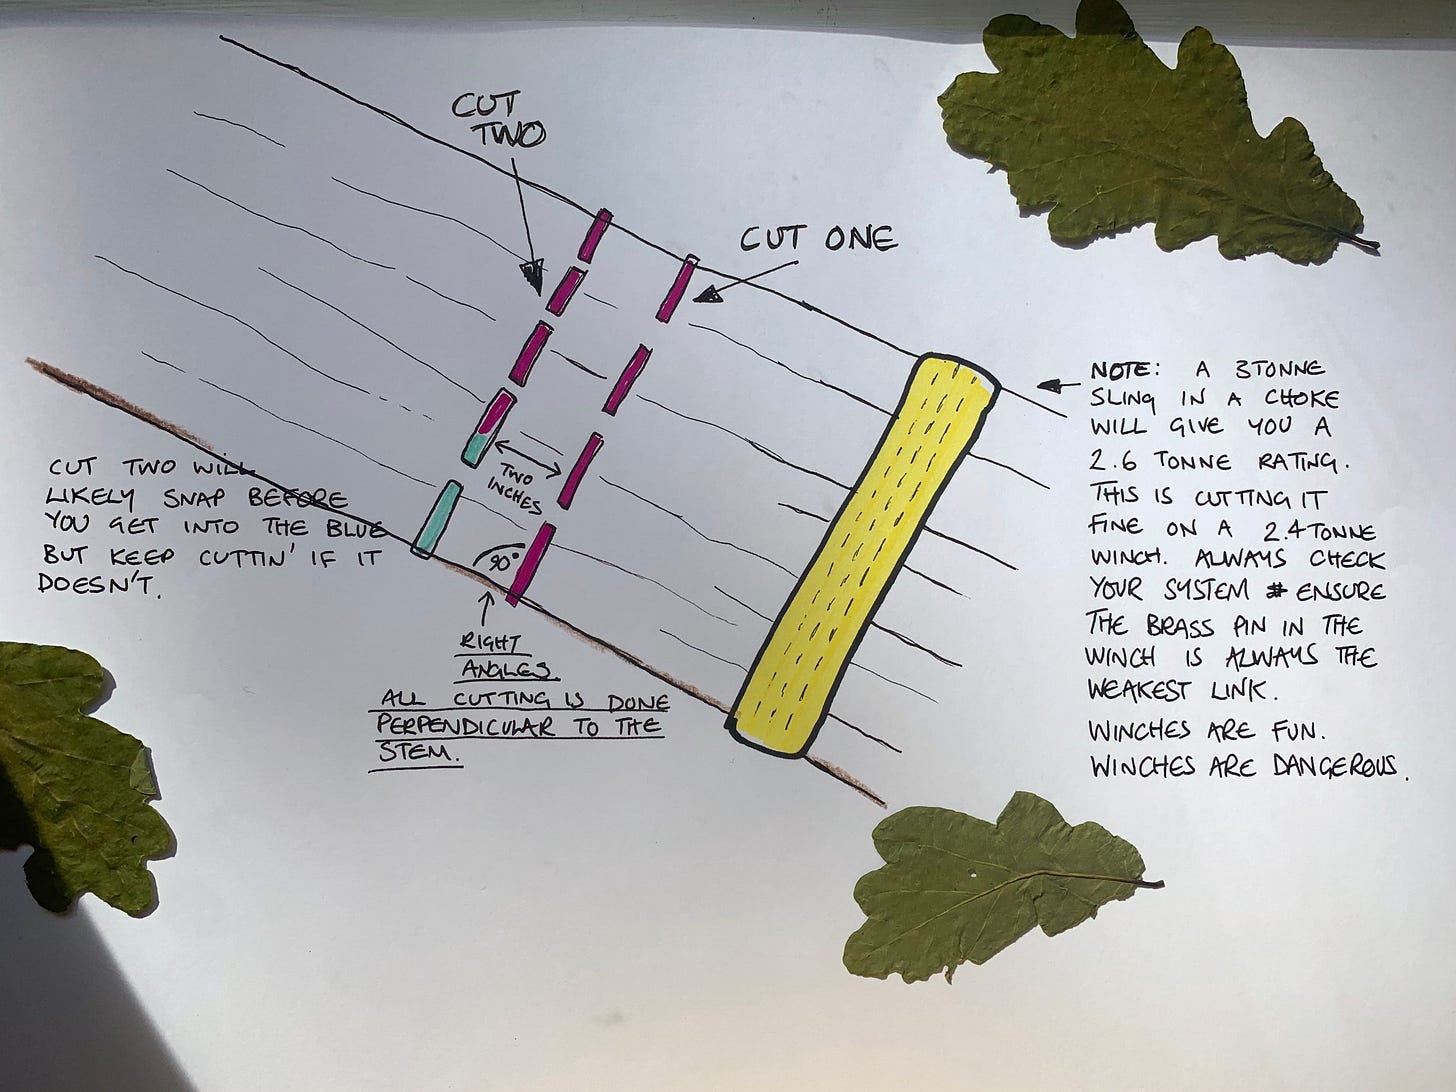 CUT
TWO
CUT ONE
NOTE: A 3TONNE
SLING IN A CHOKE
WILL GIVE YOU A
2.6 TONNE RATING.
THIS IS CUTTING IT
FINE ON A 2.4TONNE
WINCH. ALWAYS CHECK
YOUR SYSTEM & ENSURE
THE BRASS PIN IN THE
WINCH IS ALWAYS THE
WEAKEST LINK.
WINCHES ARE FUN.
WINCHES ARE DANGEROUS.
TWO
INCHES
CUT TWO WILL
LIKELY SNAP BEFORE
YOU GET INTO THE BLUE
BUT KEEP CUTTIN' IF IT
DOESN'T.
90°
RIGHT
ANGLES.
ALL CUTTING IS DONE
PERPENDICULAR TO THE
STEM.